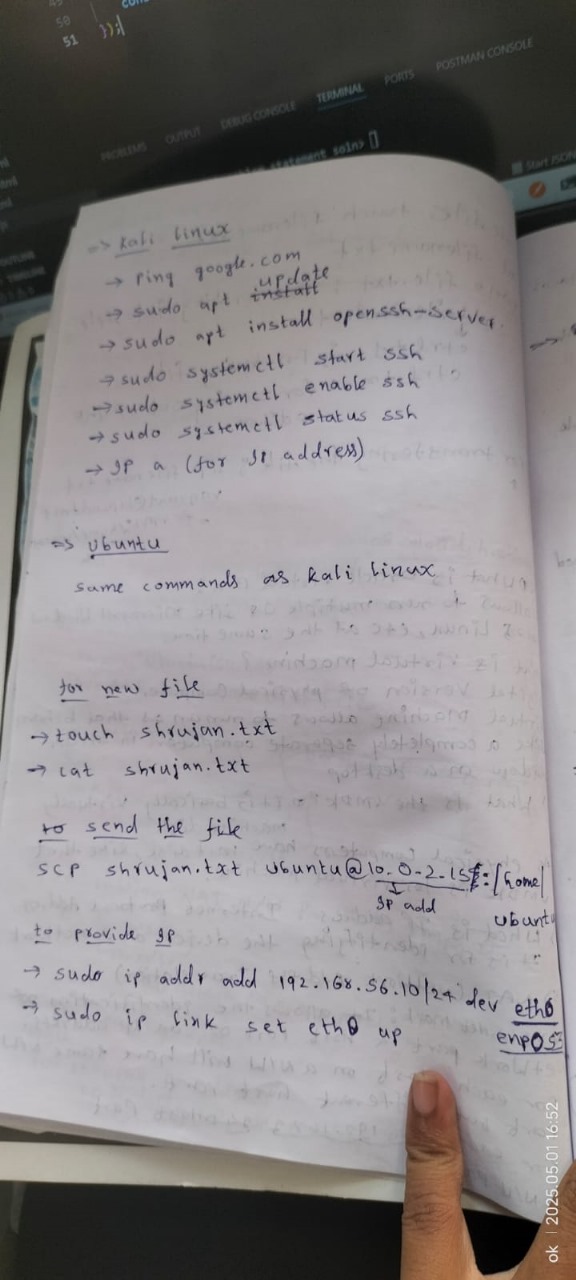 50
51 });
PROBLEMS OUTPUT DEBUG CONSOLE TERMINAL PORTS POSTMAN CONSOLE
statement soln>
Start JSON
=> Kali linux
→ Ping google.com
→ sudo apt install update
→ sudo apt install openssh-server
→ sudo systemctl start ssh
→ sudo systemctl enable ssh
→ sudo systemctl status ssh
→ IP a (for IP address)
=> Ubuntu
same commands as kali linux
for new file
→ touch shrujan.txt
→ cat shrujan.txt
to send the file
scp shrujan.txt ubuntu@10.0.2.15:/home/
IP add
ubuntu
to provide IP
→ sudo ip addr add 192.168.56.10/24 dev eth0
→ sudo ip link set eth0 up
enp0s
ok | 2025.05.01 16:52